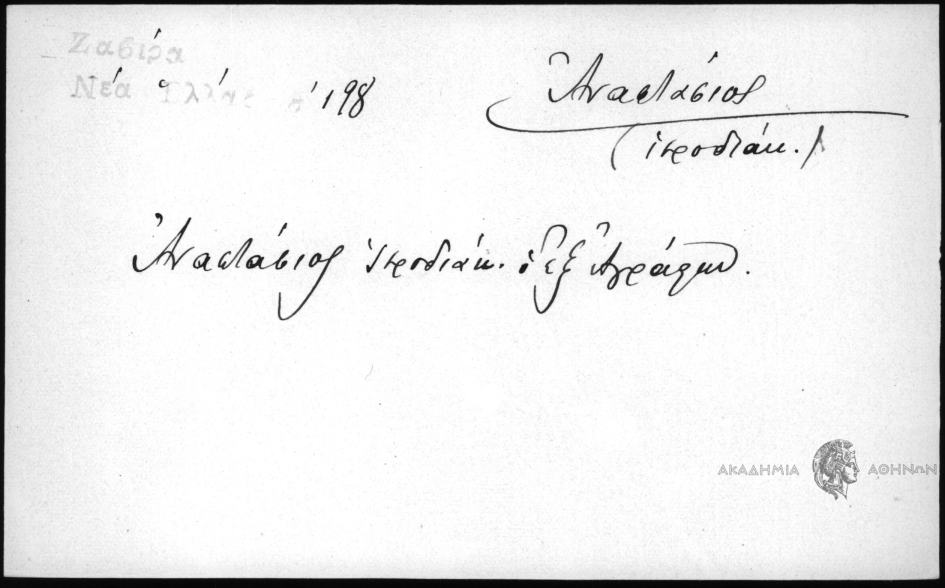 Ζαβίρα
Νέα Ἑλλάς σ. 198
Ἀναστάσιος
(ἱεροδιάκ.)
Ἀναστάσιος ἱεροδιάκ. ὁ ἐξ Ἀγράφων.
ΑΚΑΔΗΜΙΑ ΑΘΗΝΩΝ